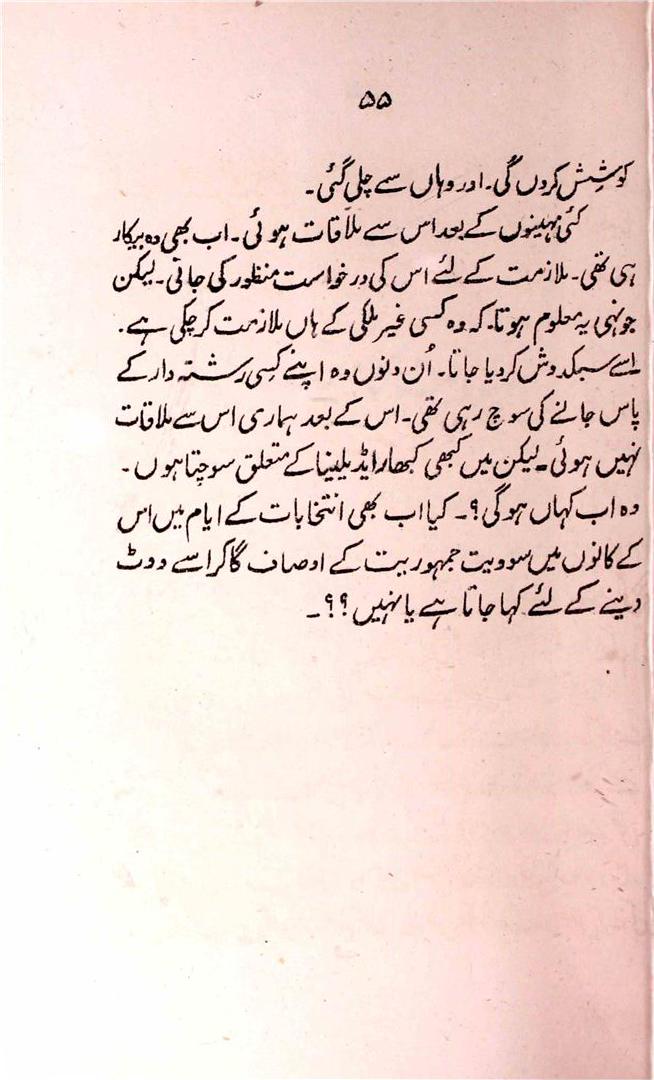 ۵۵
کوشش کروں گی۔ اور وہاں سے چلی گئی۔
کئی مہینوں کے بعد اس سے ملاقات ہوئی۔ اب بھی وہ بیکار
ہی تھی۔ ملازمت کے لئے اس کی درخواست منظور کی جاتی۔ لیکن
جونہی یہ معلوم ہوتا۔ کہ وہ کسی غیر ملکی کے ہاں ملازمت کر چکی ہے۔
اسے سبکدوش کر دیا جاتا۔ اُن دنوں وہ اپنے کسی رشتہ دار کے
پاس جانے کی سوچ رہی تھی۔ اس کے بعد ہماری اس سے ملاقات
نہیں ہوئی۔ لیکن میں کبھی کبھار ایڈیلینا کے متعلق سوچتا ہوں۔
وہ اب کہاں ہوگی؟۔ کیا اب بھی انتخابات کے ایام میں اس
کے کانوں میں سوویت جمہوریت کے اوصاف گا کر اسے ووٹ
دینے کے لئے کہا جاتا ہے یا نہیں؟؟۔